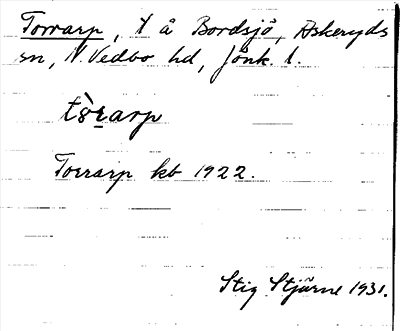 Torrarp, t å Bordsjö, Askeryds
sn, N. Vedbo hd, Jönk. l.
tò̀rarp
Torrarp kb 1922.
Stig Stjärne 1931.